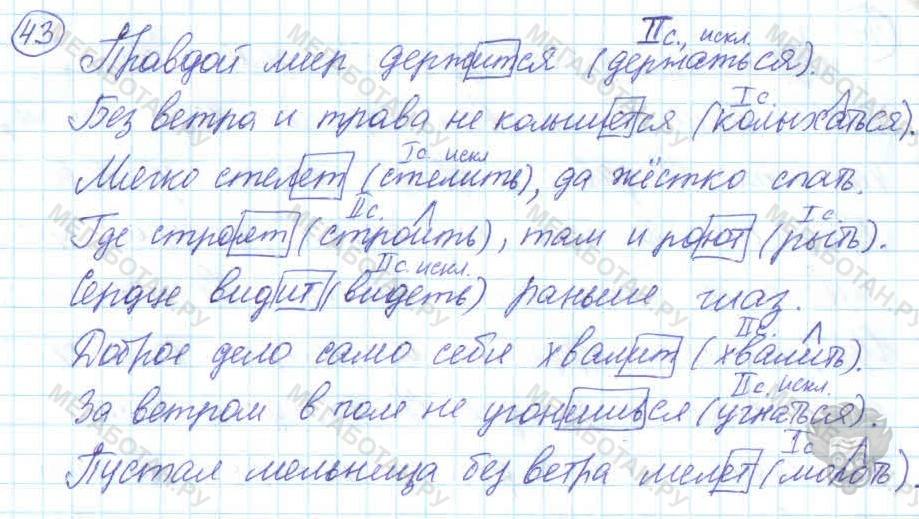 43
IIс., искл.
Правдой мир держится (держаться).
Iс.
Без ветра и трава не колышется (колыхаться).
Iс искл
Мягко стелет (стелить), да жёстко спать.
IIс. Iс.
Где строят (строить), там и роют (рыть).
IIс. искл.
Сердце видит (видеть) раньше глаз.
IIс.
Доброе дело само себя хвалит (хвалить).
IIс. искл.
За ветром в поле не угонишься (угнаться).
Iс
Пустая мельница без ветра мелет (молоть).
МЕГАБОТАН.РУ